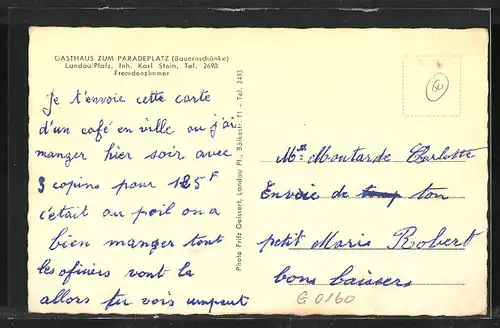 GASTHAUS ZUM PARADEPLATZ (Bauernschänke)
Landau/Pfalz, Inh. Karl Stein, Tel. 2693
Fremdenzimmer
Je t'envoie cette carte
d'un café en ville ou j'ai
manger hier soir avec
3 copins pour 125F
c'était au poil on a
bien manger tout
les oficiers vont la
alors tu vois
Photo Fritz Geissert, Landau Pf., 11 - Tel. 2493
Mlle Moutarde Charlotte
Envoie de ton
petit Marie Robert
bons baissers
G 0160